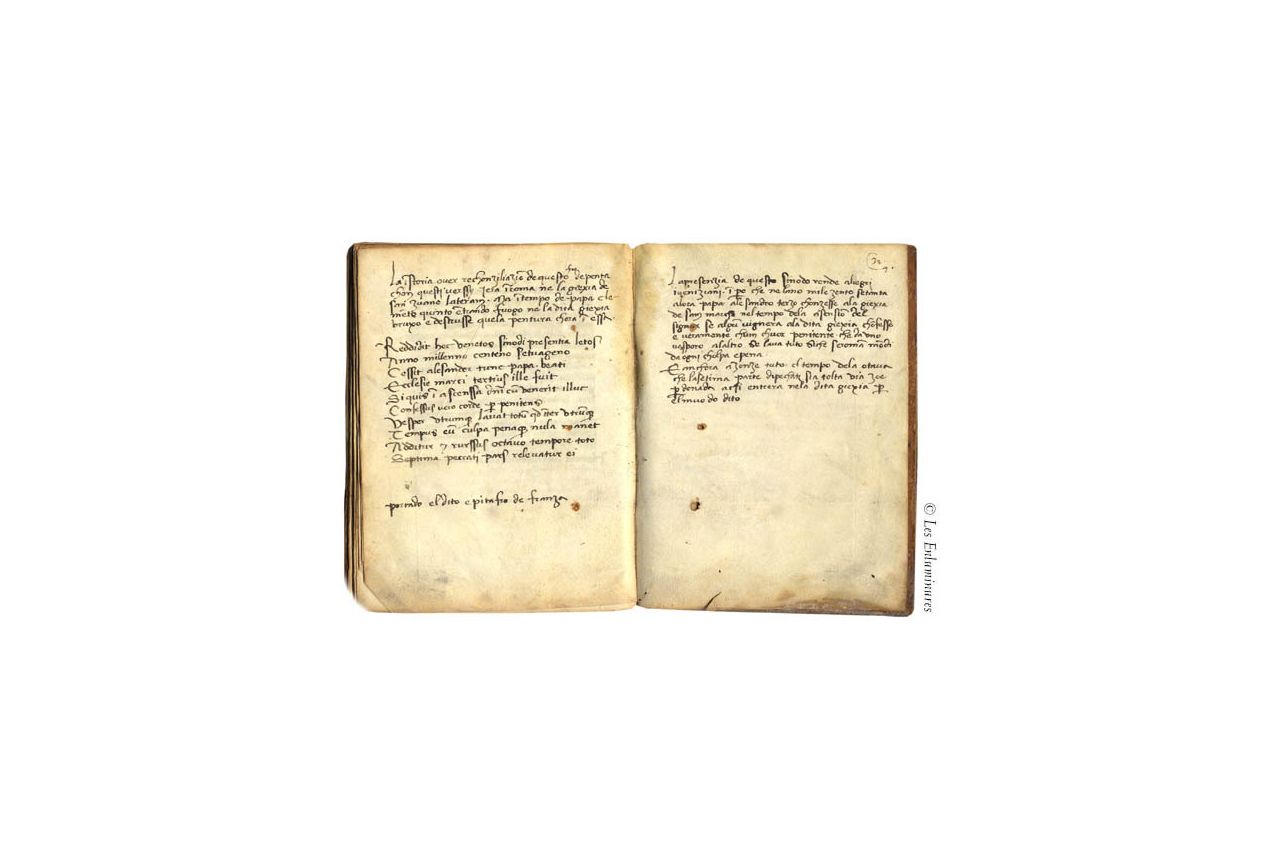 La istoria over rechonziliazio de questo fu depenta
chon questi verssy jera i roma ne la giexia de
san zuane lateran. Ma i tempo de papa Cle
mete quinto etrando fuogo ne la dita giexia
bruxo e destrusse quela pentura chera i essa
Reddidit hec venetos sinodi presentia letos
Anno milleno centeno septuageno
Cessit alesander tunc papa beati
Eclesie marci tertius ille fuit
Si quis i ascenssa dni cu venerit illuc
Confessus vero corde p penitens
Vesper utrumque lavat totu qd iter utrumque
Tempus eu culpa penaque nula manet
Additur & rurssus octavo tempore toto
Septima peccati pars relevatur ei
portado el dito epitafio de franza
32
La presenzia de questo sinodo rende alegri
i veniziani. i pe che ne lano mile zento setanta
alora papa alesandro terzo chonzesse ala giexia
de san marcho nel tempo dela asensio del
signor se algun vignera ala dita giexia chofesso
e veramente chum chuor penitente che da uno
vesporo alaltro se lava tuto siche nesciona
da ogni cholpa e pena
E anchora azonze tuto el tempo dela otava
che la setima parte di pechati sia tolta via zoe
p donada a chi entrera nela dita giexia p
el muodo dito
© Les Enluminures